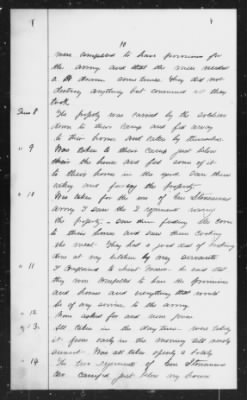 10
were compelled to have provisions for
the army and that the mules needed
it driven some times they did not
destroy anything but consumed all they
took
Ques 8 The property was carried by the soldiers
down to their Camp and fed away
to their horses and eaten by themselves
" 9 Was taken to their camp just below
their the house and fed some of it
to their horses in the yard. Saw them
eating and foraging the property
" 10 Was taken for the use of Gen Stonemans
army. I saw the 2 regiments using
the property. Saw them feeding the corn
to their horses and saw them cooking
the meat. They had a good deal of cooking
done at my kitchen by my servants
" 11 I complained to Maj. He said that
they were compelled to have the provisions
and horses and everything that would
be of any service to the army.
" 12 None asked for and none given
" 13 All taken in the day time were taking
it from early in the morning till nearly
sunset. Was all taken openly &
" 14 The two regiments of Gen Stonemans
were camped just below my house